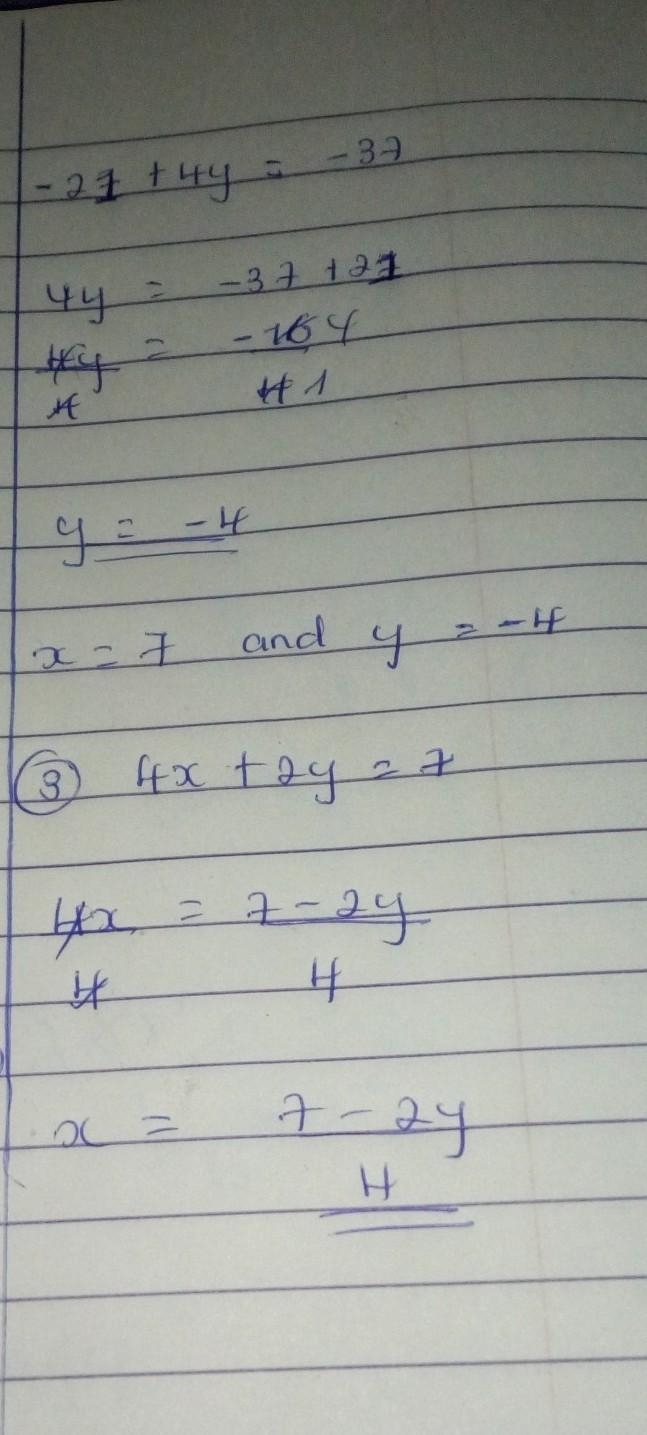 -21 + 4y = -37
4y = -37 + 21
4y = -16 4
4 4 1
y = -4
x = 7 and y = -4
3 4x + 2y = 7
4x = 7 - 2y
4 4
x = 7 - 2y
4